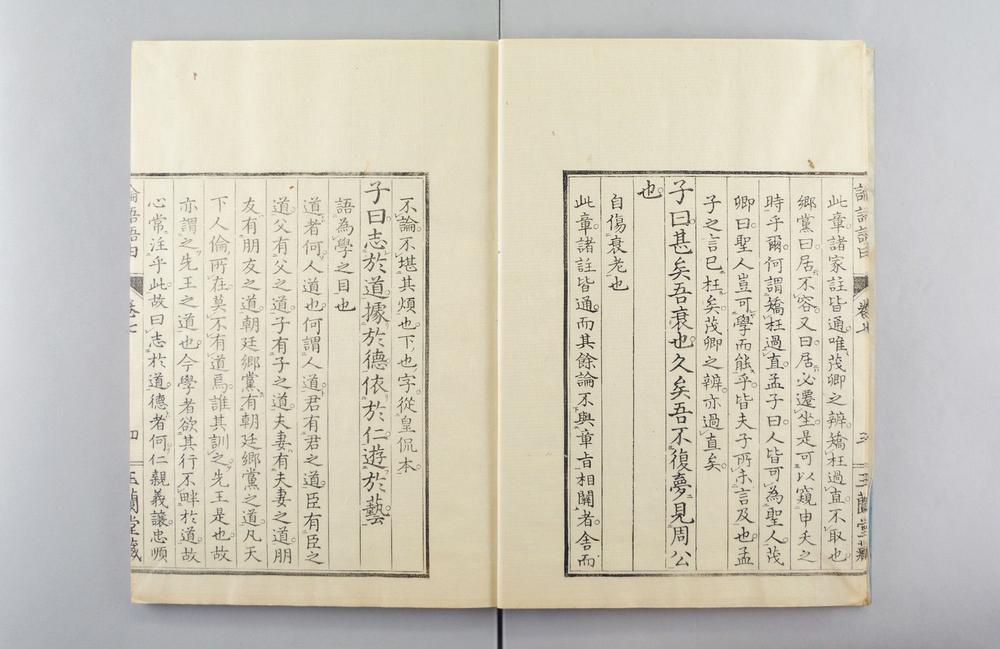 此章諸家註皆通唯茂卿之辨矯枉過直不取也
鄉黨曰居不容又曰居必遷坐是可以窺申夭之
時乎爾何謂矯枉過直孟子曰人皆可為聖人茂
卿曰聖人豈可學而能乎皆夫子所未言及也孟
子之言已枉矣茂卿之辨亦過直矣
子曰甚矣吾衰也久矣吾不復夢見周公
也
自傷衰老也
此章諸註皆通而其餘論不與章旨相關者舍而
不論不堪其煩也下也字從皇侃本
子曰志於道據於德依於仁遊於藝
語為學之目也
道者何人道也何謂人道君有君之道臣有臣之
道父有父之道子有子之道夫妻有夫妻之道朋
友有朋友之道朝廷鄉黨有朝廷鄉黨之道凡天
下人倫所在莫不有道焉誰其訓之先王是也故
亦謂之先王之道也今學者欲其行不畔於道故
心常注乎此故曰志於道德者何仁親義讓忠順
論語語由
卷七
四
玉蘭堂藏